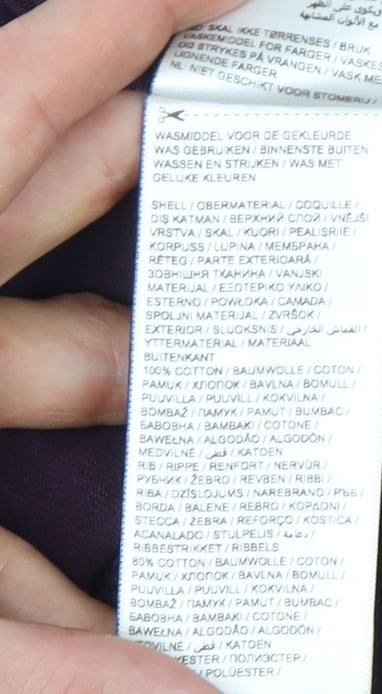 فيكوى على الظهر
مع الألوان المشابهة
NO: SKAL IKKE TØRRENSES / BRUK
VASKEMIDDEL FOR FARGER / VASKES
OG STRYKES PÅ VRANGEN / VASK MED
LIGNENDE FARGER
NL: NIET GESCHIKT VOOR STOMERIJ /
WASMIDDEL VOOR DE GEKLEURDE
WAS GEBRUIKEN / BINNENSTE BUITEN
WASSEN EN STRIJKEN / WAS MET
GELIJKE KLEUREN
SHELL / OBERMATERIAL / COQUILLE /
DIŞ KATMAN / ВЕРХНИЙ СЛОЙ / VNĚJŠÍ
VRSTVA / SKAL / KUORI / PEALISRIIE /
KORPUSS / LUPINA / МЕМБРАНА /
RÉTEG / PARTE EXTERIOARĂ /
ЗОВНІШНЯ ТКАНИНА / VANJSKI
MATERIJAL / ΕΞΩΤΕΡΙΚΟ ΥΛΙΚΟ /
ESTERNO / POWŁOKA / CAMADA /
SPOLJNI MATERIJAL / ZVRŠOK /
EXTERIOR / SLUOKSNIS / القماش الخارجي /
YTTERMATERIAL / MATERIAAL
BUITENKANT
100% COTTON / BAUMWOLLE / COTON /
PAMUK / ХЛОПОК / BAVLNA / BOMULL /
PUUVILLA / PUUVILL / KOKVILNA /
BOMBAŽ / ПАМУК / PAMUT / BUMBAC /
БАВОВНА / ΒΑΜΒΑΚΙ / COTONE /
BAWEŁNA / ALGODÃO / ALGODÓN /
MEDVILNĖ / قطن / KATOEN
RIB / RIPPE / RENFORT / NERVÜR /
РУБЧИК / ŽEBRO / REVBEN / RIBBI /
RIBA / DZĪSLOJUMS / NAREBRANO / РЪБ /
BORDA / BALENE / REBRO / ΚΟΡΔΟΝΙ /
STECCA / ŻEBRA / REFORÇO / KOSTICA /
ACANALADO / STULPELIS / دعامة /
RIBBESTRIKKET / RIBBELS
80% COTTON / BAUMWOLLE / COTON /
PAMUK / ХЛОПОК / BAVLNA / BOMULL /
PUUVILLA / PUUVILL / KOKVILNA /
BOMBAŽ / ПАМУК / PAMUT / BUMBAC /
БАВОВНА / ΒΑΜΒΑΚΙ / COTONE /
BAWEŁNA / ALGODÃO / ALGODÓN /
MEDVILNĖ / قطن / KATOEN
YESTER / ПОЛИЭСТЕР /
/ POLÜESTER /